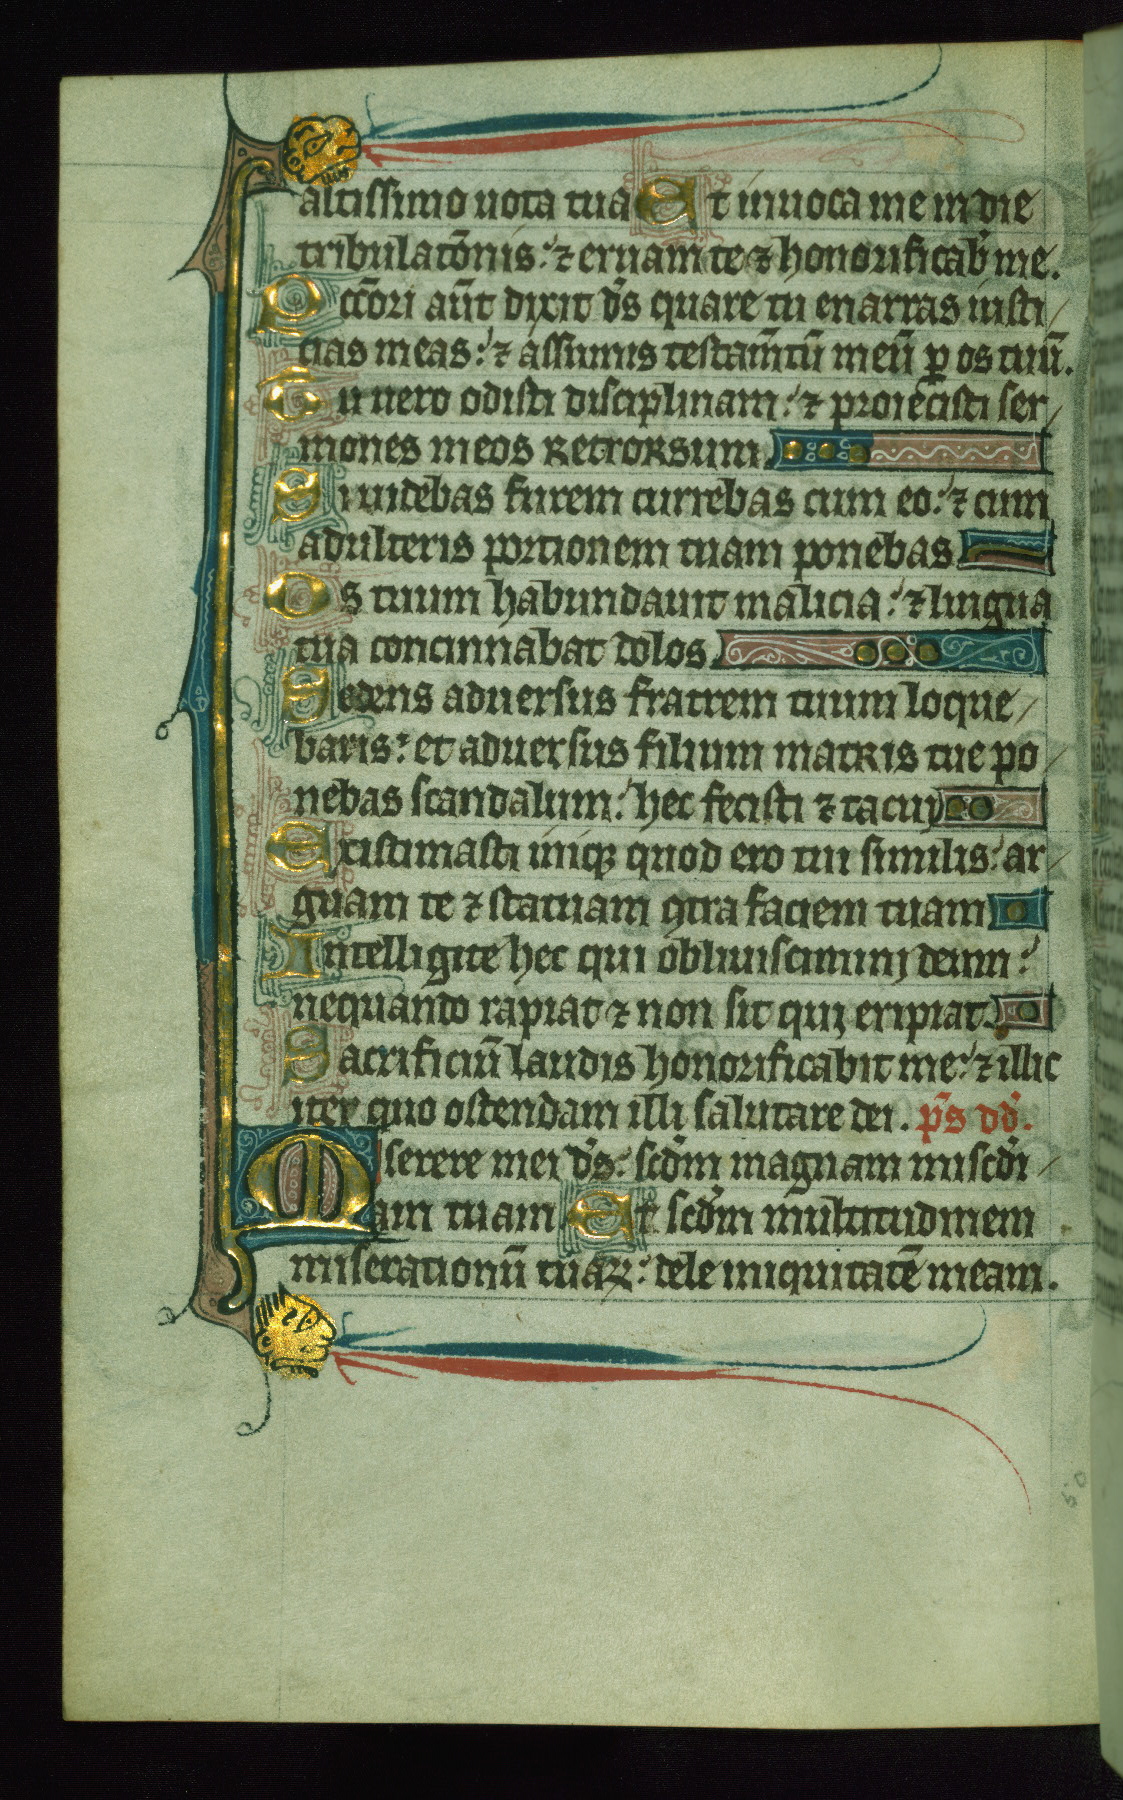 altissimo uota tua Et inuoca me in die
tribulatōnis: ⁊ eruam te ⁊ honorificab̄ me.
Pccōri aūt dixit d̄s quare tu enarras iusti
cias meas: ⁊ assumis testam̄tū meū ꝑ os tuū.
Tu uero odisti disciplinam: ⁊ proiecisti ser
mones meos retrorsum
Si uidebas furem currebas cum eo: ⁊ cum
adulteris portionem tuam ponebas
Os tuum habundauit malicia: ⁊ lingua
tua concinnabat dolos
Sedens aduersus fratrem tuum loque
baris: et aduersus filium matris tue po
nebas scandalum: hec fecisti ⁊ tacuy
Existimasti iniqꝫ quod ero tui similis: ar
guam te ⁊ statuam ꝯtra faciem tuam
Intelligite hec qui obliuisciminj deum:
nequando rapiat ⁊ non sit quj eripiat.
Sacrificiū laudis honorificabit me: ⁊ illic
iter quo ostendam illi salutare dei. p̄s dd̄.
Miserere mei d̄s: scd̄m magnam misc̄di
am tuam Et scd̄m multitudinem
miserationū tuaꝝ: dele iniquitatē meam.
50